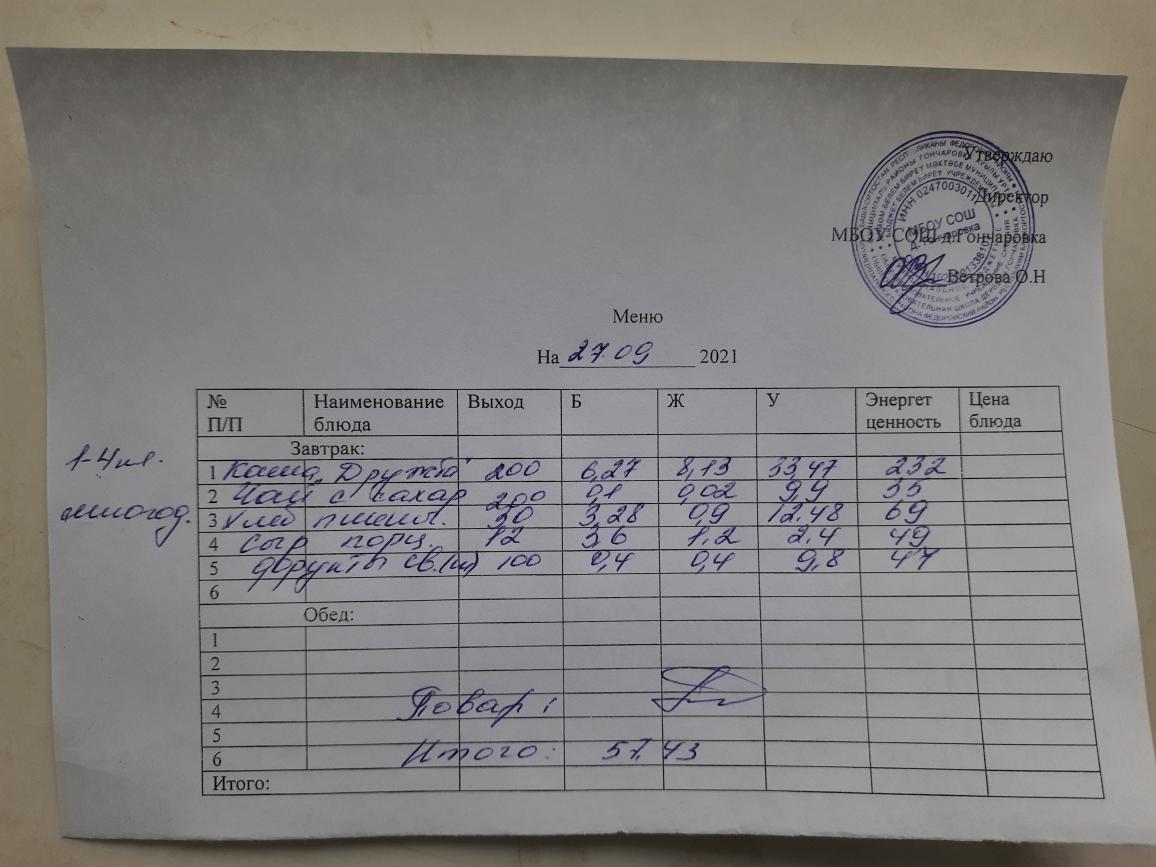 Утверждаю
Директор
МБОУ СОШ д.Гончаровка
Ветрова О.Н
МБОУ СОШ
Меню
На 27.09 2021
№ П/П Наименование блюда Выход Б Ж У Энергет ценность Цена блюда
Завтрак:
1-4 кл.
1 Каша „Дружба" 200 6,27 8,13 33,47 232
2 Чай с сахар 200 0,1 0,02 9,9 35
многод.
3 Хлеб пшен. 30 3,28 0,9 12,48 69
4 сыр порц. 12 3,6 1,2 2,4 49
5 фрукты св.(ш) 100 0,4 0,4 9,8 47
6
Обед:
1
2
3
4 Повар:
5
6 Итого: 57,43
Итого: